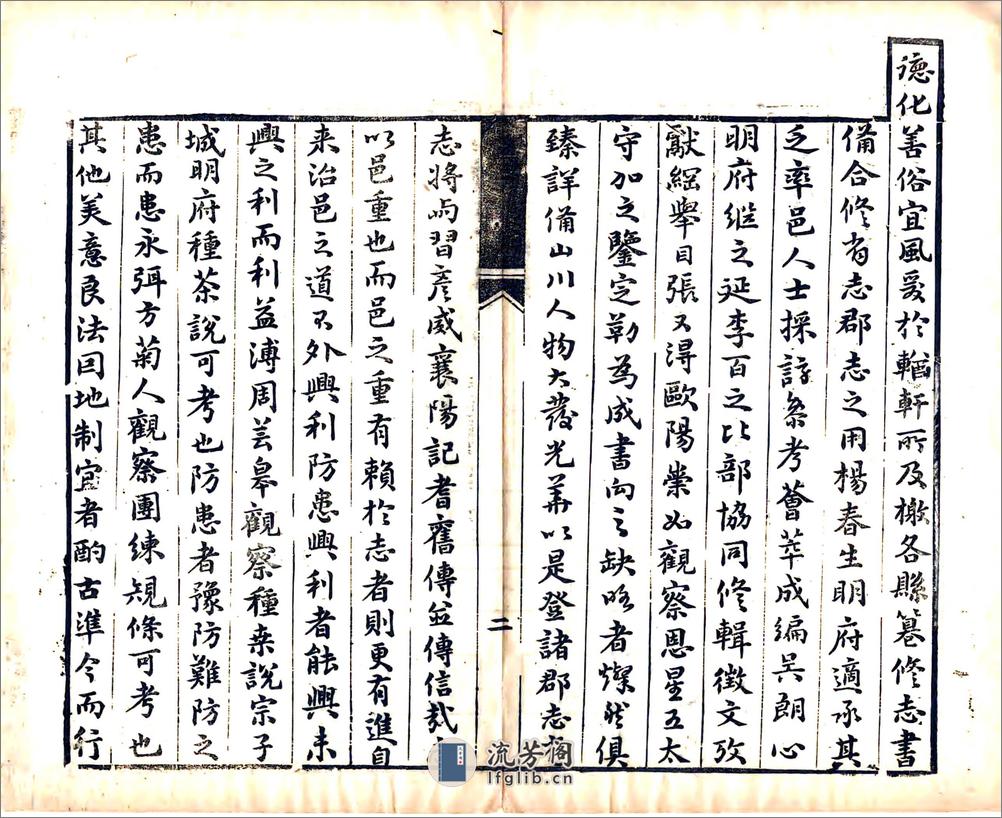 德化善俗宜風爰於輶軒所及檄各縣纂修志書
備合修省志郡志之用楊春生明府適承其
乏率邑人士採訪叅考薈萃成編吳朗心
明府繼之延李百之比部協同修輯徵文攷
獻綱舉目張又得歐陽棠如觀察恩星五太
守加之鑒定勒為成書向之缺略者燦然俱
臻詳備山川人物大發光華以是登諸郡志
二
志將與習彥威襄陽記耆舊傳並傳信哉
以邑重也而邑之重有賴於志者則更有進自
来治邑之道不外興利防患興利者能興未
興之利而利益溥周芸皋觀察種桑說宗子
城明府種茶說可考也防患者豫防難防之
患而患永弭方菊人觀察團練規條可考也
其他美意良法因地制宜者酌古準今而行
流芳阁
lfglib.cn